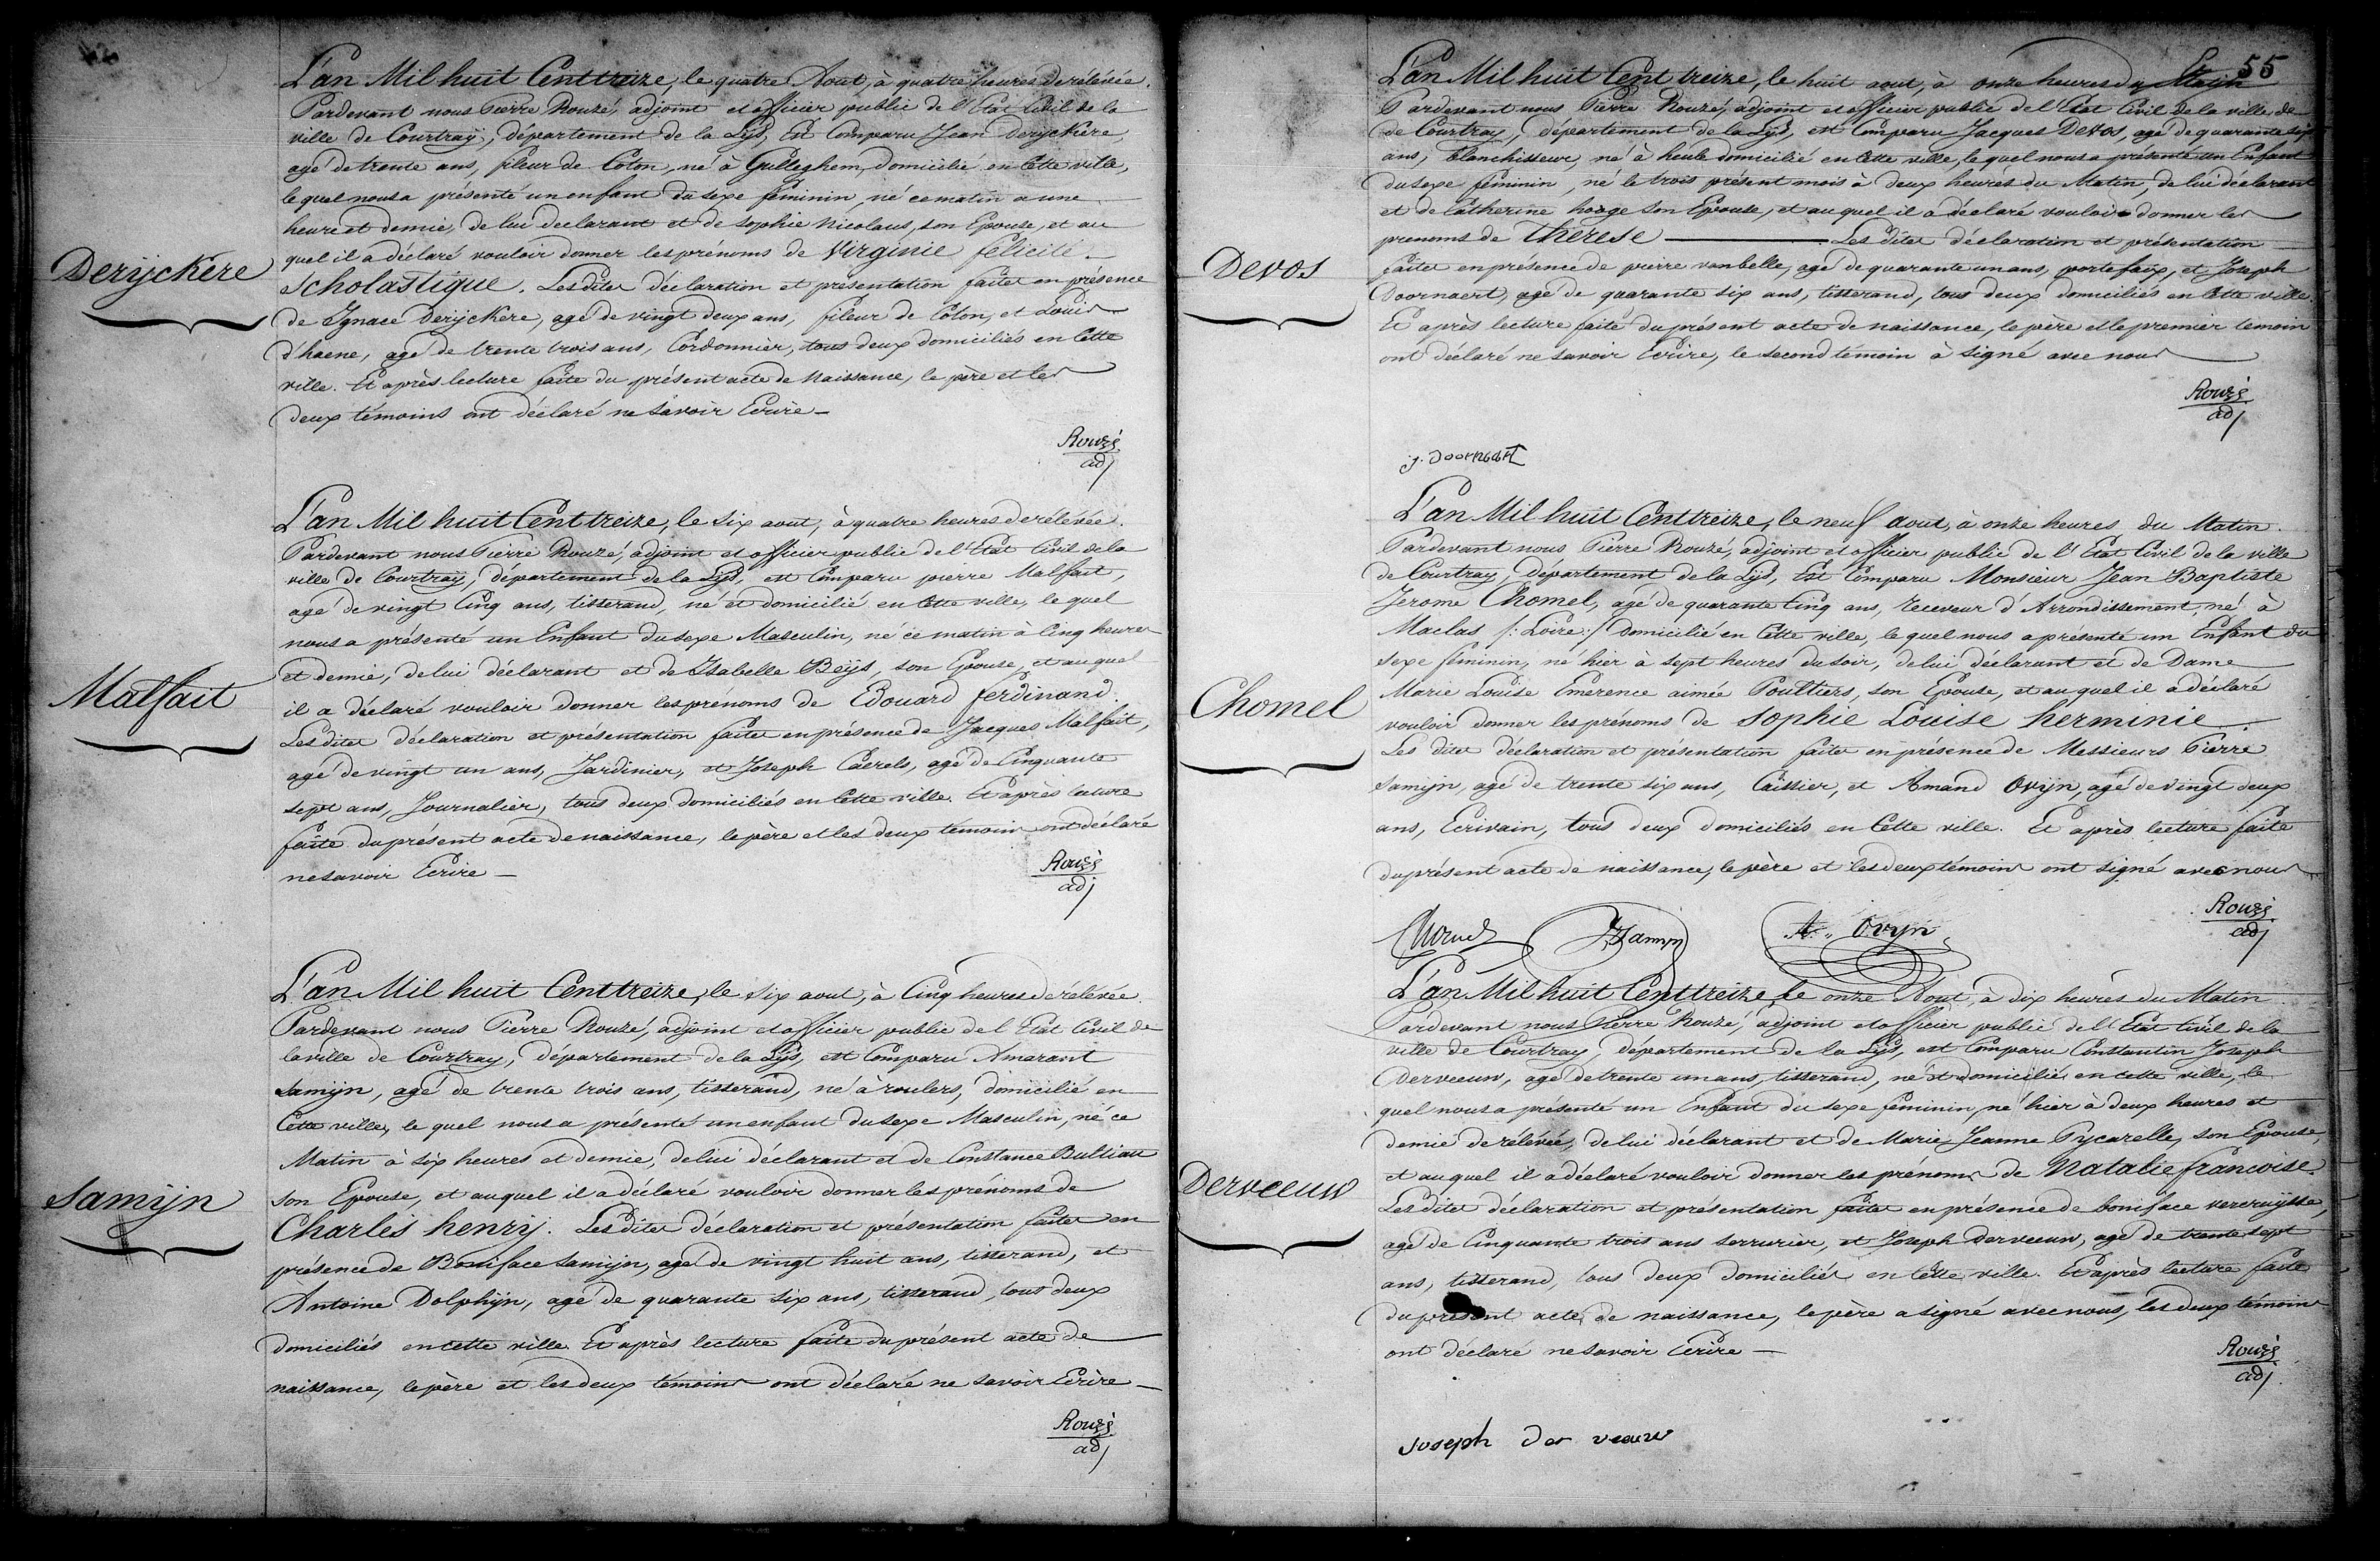 L'an Mil huit Cent treize, le quatre Aout, à quatre heures de rélévée.
Pardevant nous Pierre Rouzé, adjoint et officier public de l'Etat Civil de la
ville de Courtraÿ, département de la Lÿs, Est Comparu Jean Derijckere,
agé de trente ans, fileur de Coton, né à Gulleghem, domicilié en Cette ville,
le quel nous a présenté un enfant du sexe féminin, né ce matin a une
heure et demie, de lui déclarant et de Sophie Nicolaus, son Epouse, et au
quel il a déclaré vouloir donner les prénoms de Virginie félicité
Derijckere
Scholastique. Les dites déclaration et présentation faites en présence
de Ignace Derijckere, agé de vingt deux ans, fileur de Coton, et Louis
d'haene, agé de trente trois ans, Cordonnier, tous deux domiciliés en Cette
ville. Et après lecture faite du présent acte de Naissance, le père et les
deux témoins ont déclaré ne savoir Ecrire
Rouzé
adj
L'an Mil huit Cent treize, le six aout, à quatre heures de rélévée.
Pardevant nous Pierre Rouzé, adjoint et officier public de l'Etat Civil de la
ville de Courtraÿ, département de la Lÿs, est Comparu pierre Malfait,
agé de vingt Cinq ans, tisserand, né et domicilié en Cette ville, le quel
nous a présenté un Enfant du sexe Masculin, né ce matin à Cinq heures
et demie, de lui déclarant et de Isabelle Beÿs, son Epouse, et au quel
Malfait
il a déclaré vouloir donner les prénoms de Edouard ferdinand.
Les dites déclaration et présentation faites en présence de Jacques Malfait,
agé de vingt un ans, Jardinier, et Joseph Caerels, agé de Cinquante
sept ans, Journalier, tous deux domiciliés en Cette ville. Et après lecture
faite du présent acte de naissance, le père et les deux témoins ont déclaré
ne savoir Ecrire
Rouzé
adj
L'an Mil huit Cent treize, le six aout, à Cinq heures de rélévée.
Pardevant nous Pierre Rouzé, adjoint et officier public de l'Etat Civil de
la ville de Courtray, département de la Lÿs, est Comparu Amarant
Samijn, agé de trente trois ans, tisserand, né à roulers, domicilié en
Cette ville, le quel nous a présenté un enfant du sexe Masculin, né ce
Matin à six heures et demie, de lui déclarant et de Constance Bultiau
Samijn
son Epouse, et au quel il a déclaré vouloir donner les prénoms de
Charles henrij. Les dites déclaration et présentation faites en
présence de Boniface Samijn, agé de vingt huit ans, tisserand, et
Antoine Dolphijn, agé de quarante six ans, tisserand, tous deux
domiciliés en cette ville. Et après lecture faite du présent acte de
naissance, le père et les deux témoins ont déclaré ne savoir Ecrire
Rouzé
adj
55
L'an Mil huit Cent treize, le huit aout, à onze heures du Matin
Pardevant nous Pierre Rouzé, adjoint et officier public de l'Etat Civil de la ville de
de Courtray, département de la Lÿs, est Comparu Jacques Devos, agé de quarante six
ans, blanchisseur, né à heule domicilié en Cette ville, le quel nous a présenté un Enfant
du sexe féminin, né le trois présent mois à deux heures du Matin, de lui déclarant
et de Catherine hooge son Epouse, et au quel il a déclaré vouloir donner les
prenoms de thérèse Les dites déclaration et présentation
Devos
faites en présence de pierre vanbelle, agé de quarante un ans, portefaix, et Joseph
Doornaert, agé de quarante six ans, tisserand, tous deux domiciliés en Cette ville.
Et après lecture faite du présent acte de naissance, le père et le premier temoin
ont déclaré ne savoir Ecrire, le second témoin à signé avec nous
Rouzé
adj
j. Doornaert
L'an Mil huit Cent treize, le neuf aout, à onze heures du Matin.
Pardevant nous Pierre Rouzé, adjoint et officier public de l'Etat Civil de la ville
de Courtray, département de la Lÿs, Est Comparu Monsieur Jean Baptiste
Jerome Chomel, agé de quarante Cinq ans, receveur d'Arrondissement, né à
Maclas /: Loire :/ domicilié en Cette ville, le quel nous a présenté un Enfant du
sexe féminin, né hier à sept heures du soir, de lui déclarant et de Dame
Marie Louise Emerence aimée Poultiers, son Epouse, et au quel il a déclaré
Chomel
vouloir donner les prénoms de Sophie Louise herminie.
Les dites déclaration et présentation faites en présence de Messieurs Pierre
Samijn, agé de trente six ans, Caissier, et Amand Ovijn, agé de vingt deux
ans, Ecrivain, tous deux domiciliés en Cette ville. Et après lecture faite
du présent acte de naissance, le père et les deux témoins ont signé avec nous
Rouzé
adj
Chomel Samyn A. Ovyn
L'an Mil huit Cent treize, le onze Aout, à dix heures du Matin
Pardevant nous Pierre Rouzé, adjoint et officier public de l'Etat Civil de la
ville de Courtray, département de la Lÿs, est Comparu Constantin Joseph
Derveeuw, agé de trente un ans, tisserand, né et domicilié en cette ville, le
quel nous a présenté un Enfant du sexe féminin, né hier à deux heures et
demie de rélévée, de lui déclarant et de Marie Jeanne Pycarelle, son Epouse,
et au quel il a déclaré vouloir donner les prénoms de Natalie francoise
Derveeuw
Les dites déclaration et présentation faites en présence de boniface vercruijsse,
agé de Cinquante trois ans serrurier, et Joseph Derveeuw, agé de trente sept
ans, tisserand, tous deux domiciliés en Cette ville. Et après lecture faite
du présent acte de naissance, le père a signé avec nous, les deux témoins
ont déclaré ne savoir Ecrire
Rouzé
adj
Joseph der veeuw